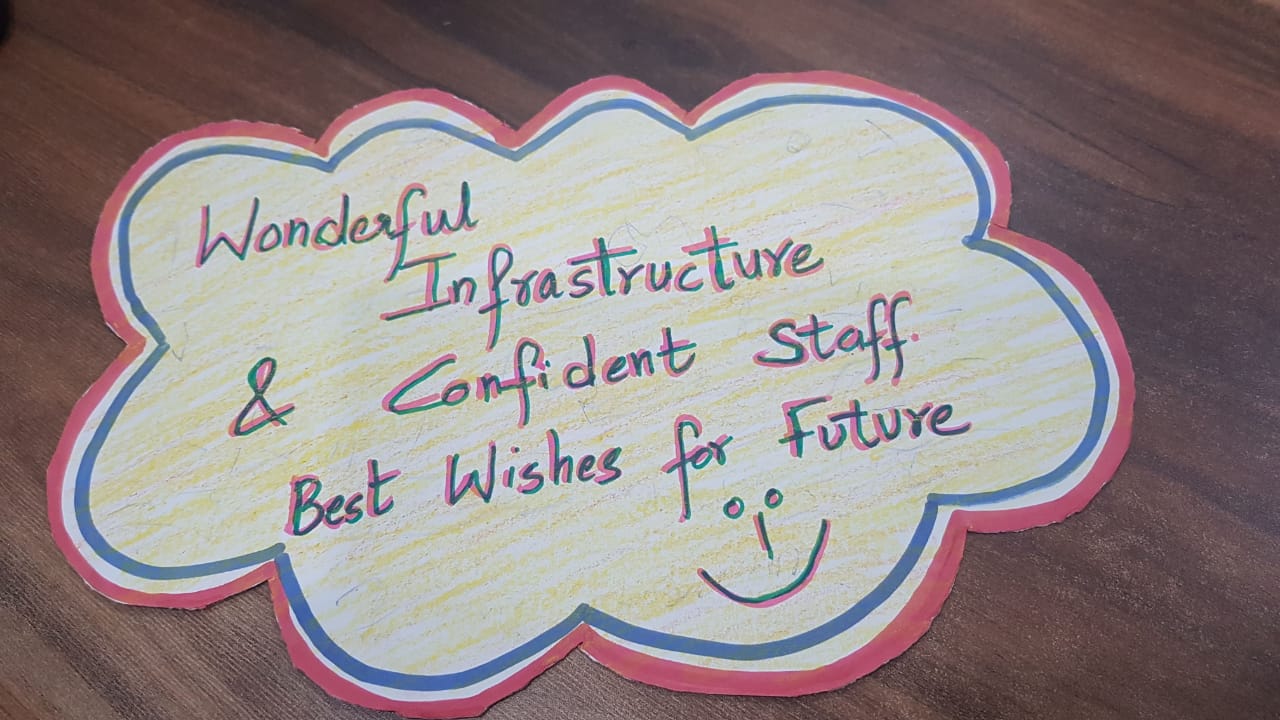 Wonderful
Infrastructure
& Confident Staff.
Best Wishes for Future